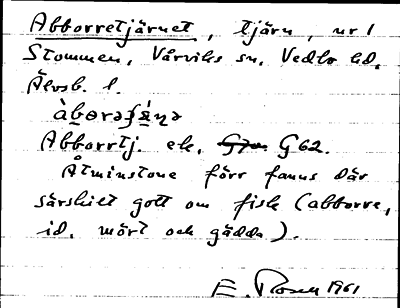 Abborretjärnet, tjärn, nr 1
Stommen, Vårviks sn, Vedbo hd,
Älvsb. l.
Abborrtj. ek. G62.
Åtminstone förr fanns där
särskilt gott om fisk (abborre,
id, mört och gädda).
E. Rosén 1961